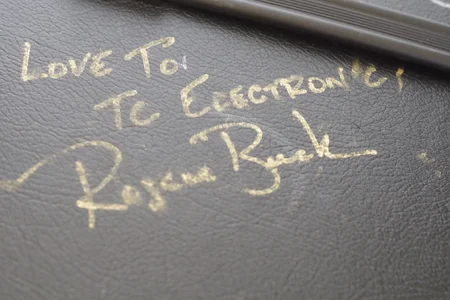 Love To,
TC Electronic,
Roseann Beck